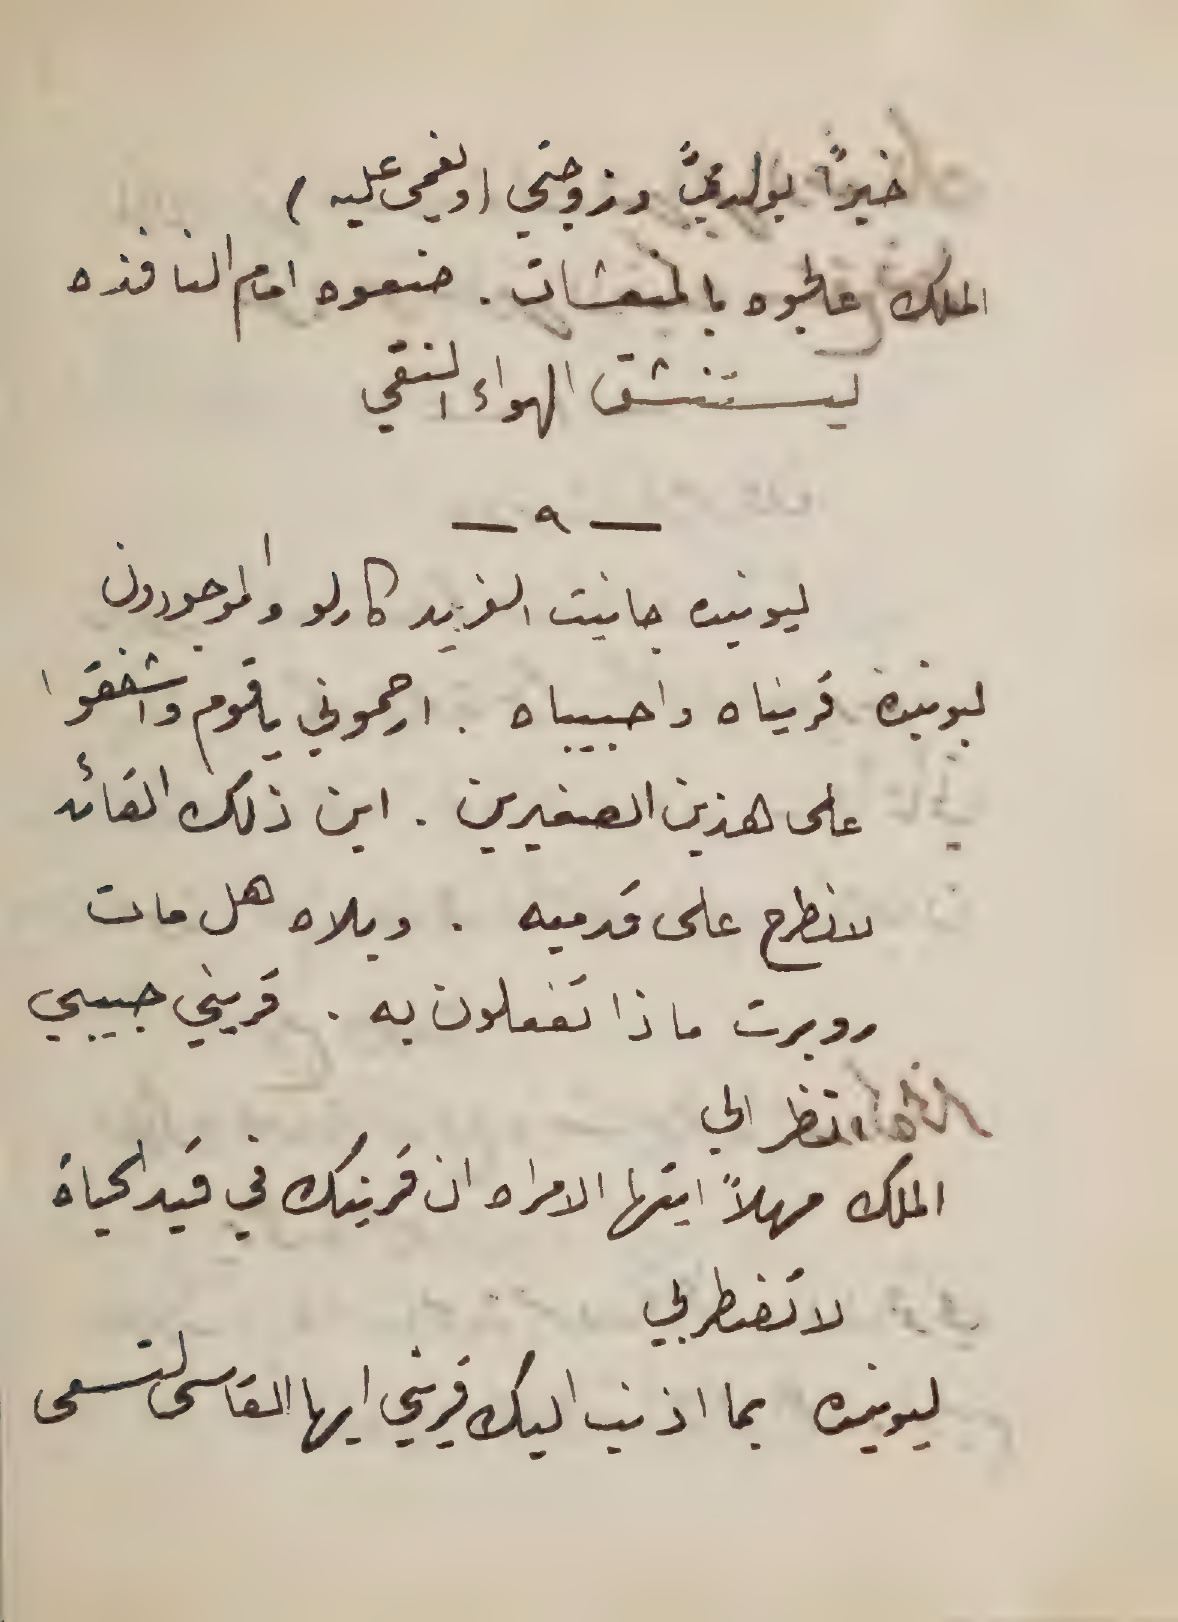 خيرًا بولديَّ وزوجتي (ويغمى عليه)
الملك عالجوه بالمنعشات . ضعوه امام النافذه
ليستنشق الهواء النقي
— ٩ —
ليونيده جانيت الفريد كارلو والموجودون
ليونيده قريناه واحبيباه . ارحموني ياقوم واشفقوا
على هذين الصغيرين . اين ذلك القائد
لانطرح على قدميه . ويلاه هل مات
روبرت ماذا تفعلون به . قريني حبيبي
انظر الي
الملك مهلاً ايتها الامراه ان قرينك في قيد الحياة
لا تضطربي
ليونيده بما اذنب اليك قريني ايها القاسى لتسعى